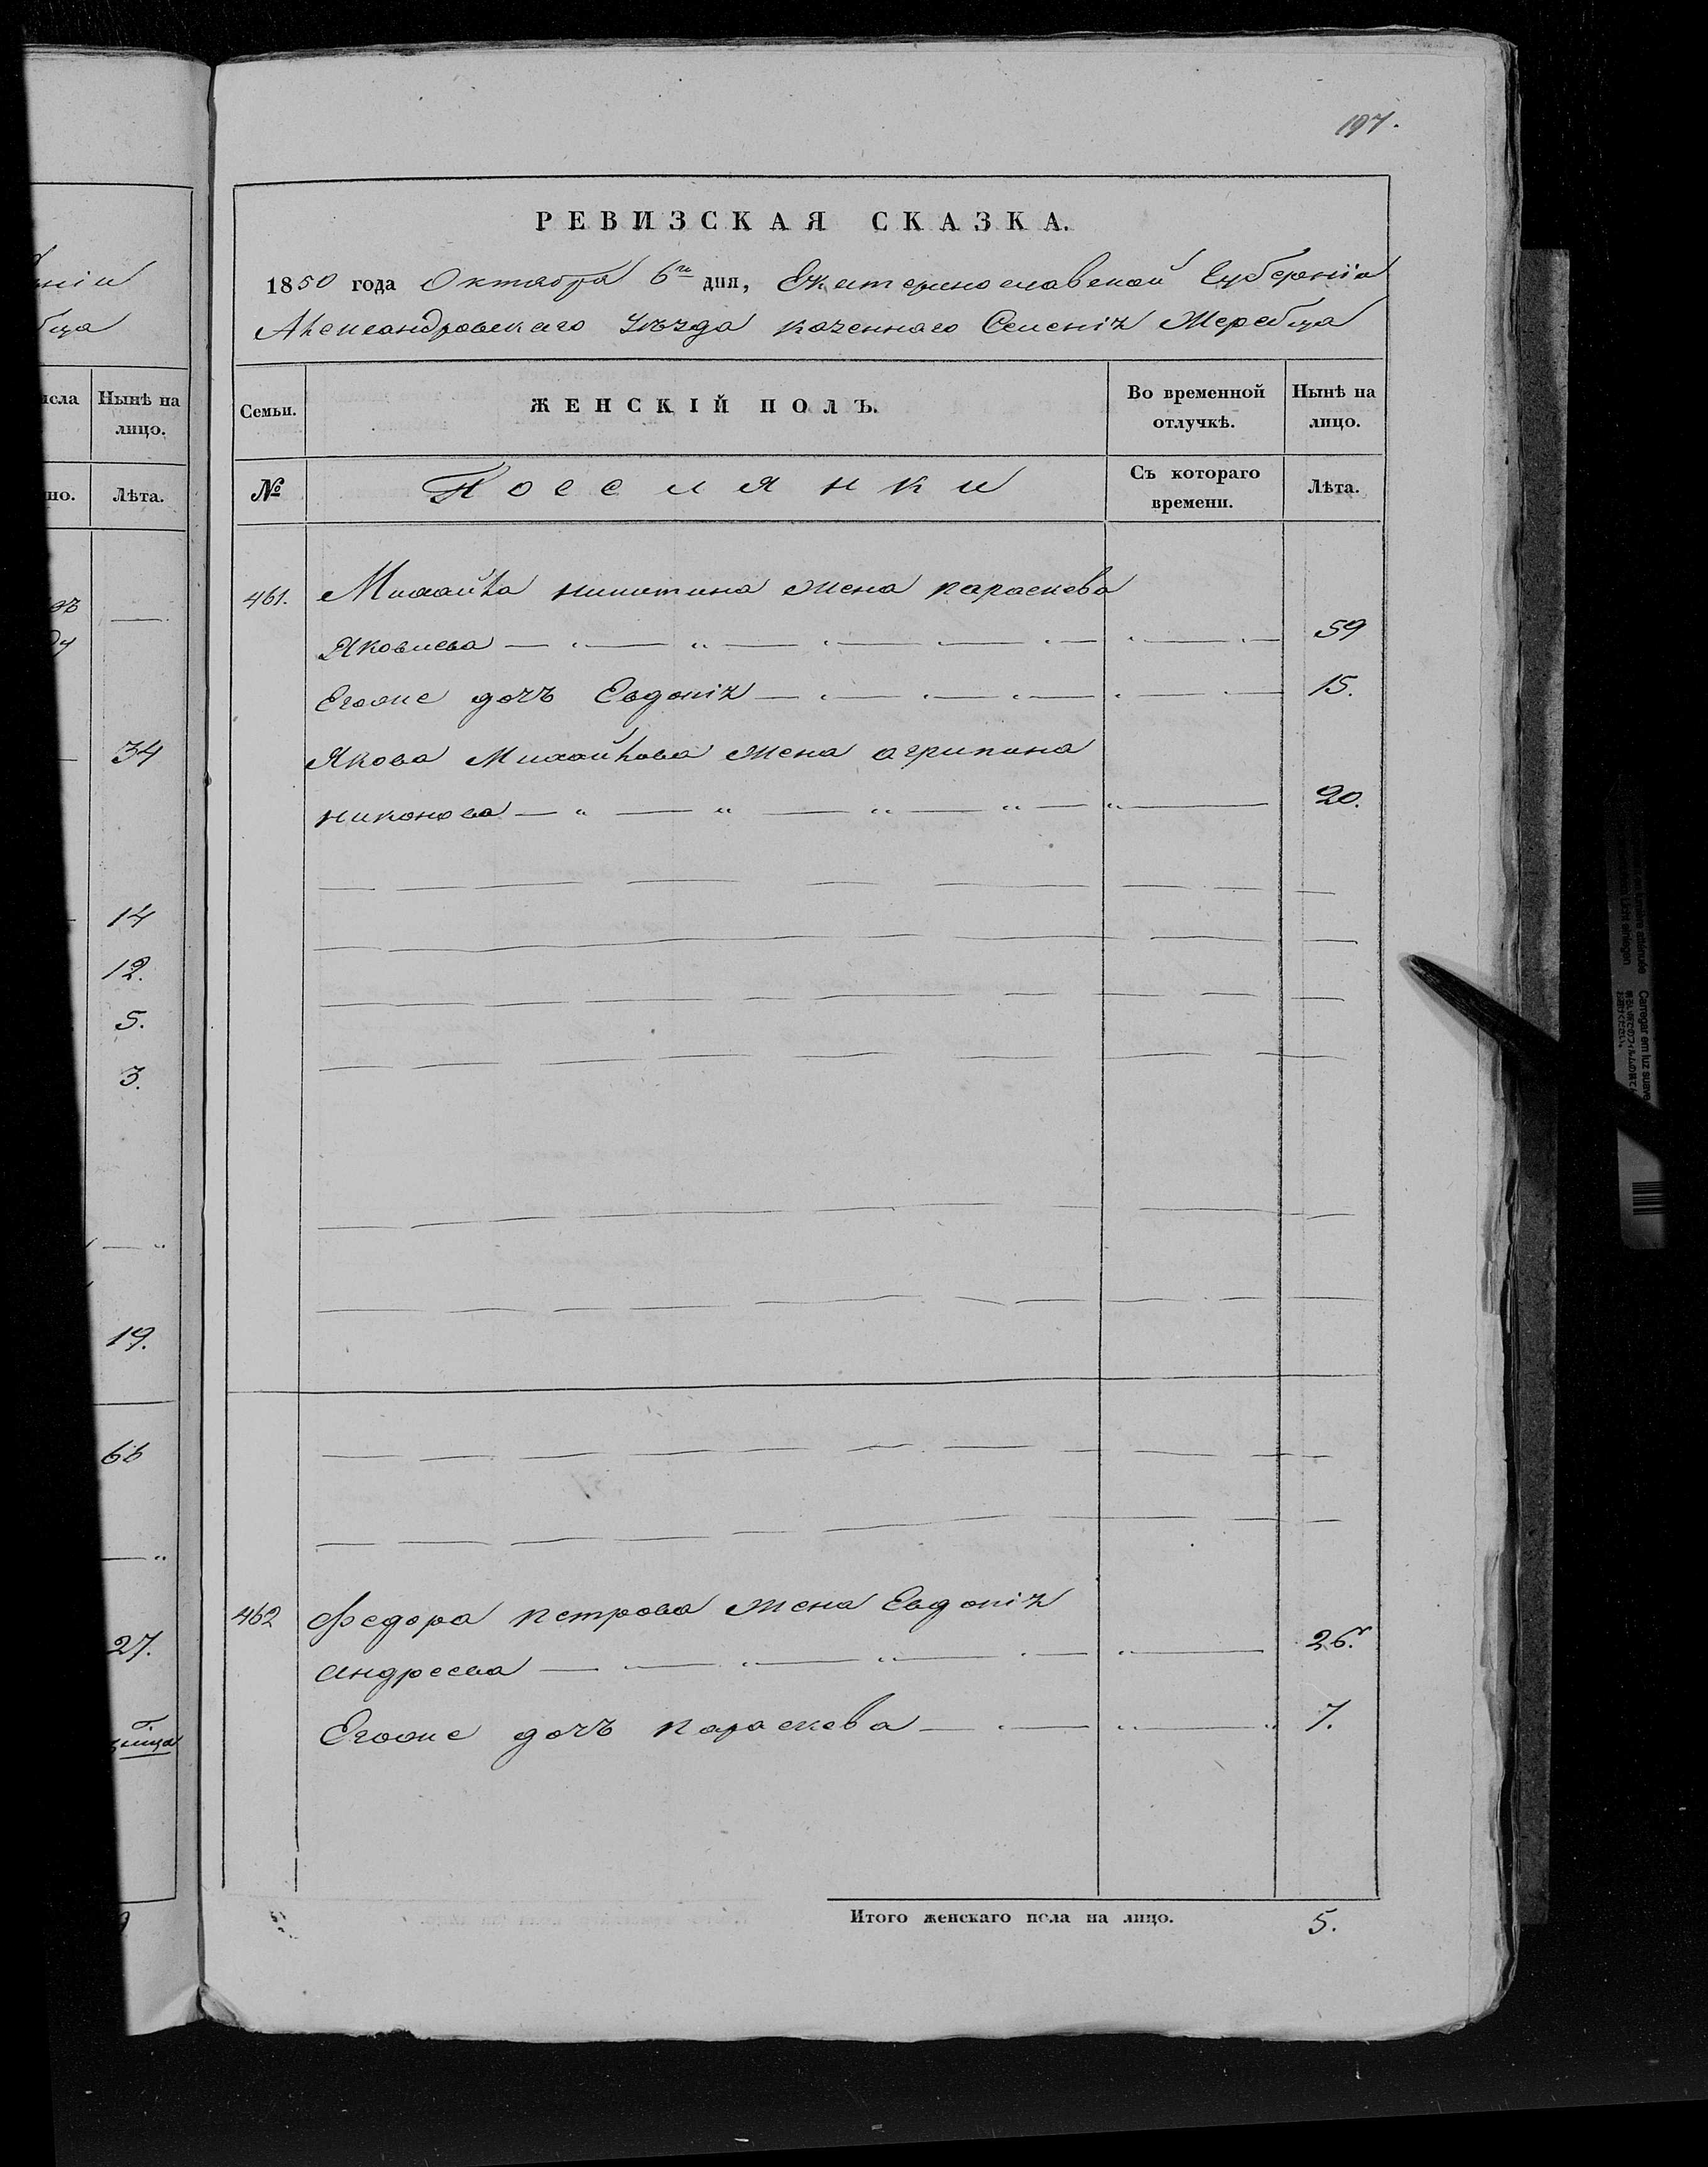 197.
РЕВИЗСКАЯ СКАЗКА.
1850 года Октября 6го дня, Екатеринославской Губерніи
Александровскаго Уѣзда казеннаго Селенія Жеребца
Семьи. ЖЕНСКІЙ ПОЛЪ. Во временной отлучкѣ. Нынѣ на лицо.
№ Поселянки Съ котораго времени. Лѣта.
461. Михайла Никитина жена параскева
Яковлева 59
Егоже дочь Евдокія 15.
Якова Михайлова жена агрипина
никонова 20.
462 Федора петрова жена Евдокія
андреева 26.
Егоже дочь параскева 7.
Итого женскаго пола на лицо. 5.
ніи
бца
исла Нынѣ на
лицо.
но. Лѣта.
34
14
12.
5.
3.
19.
66
27.